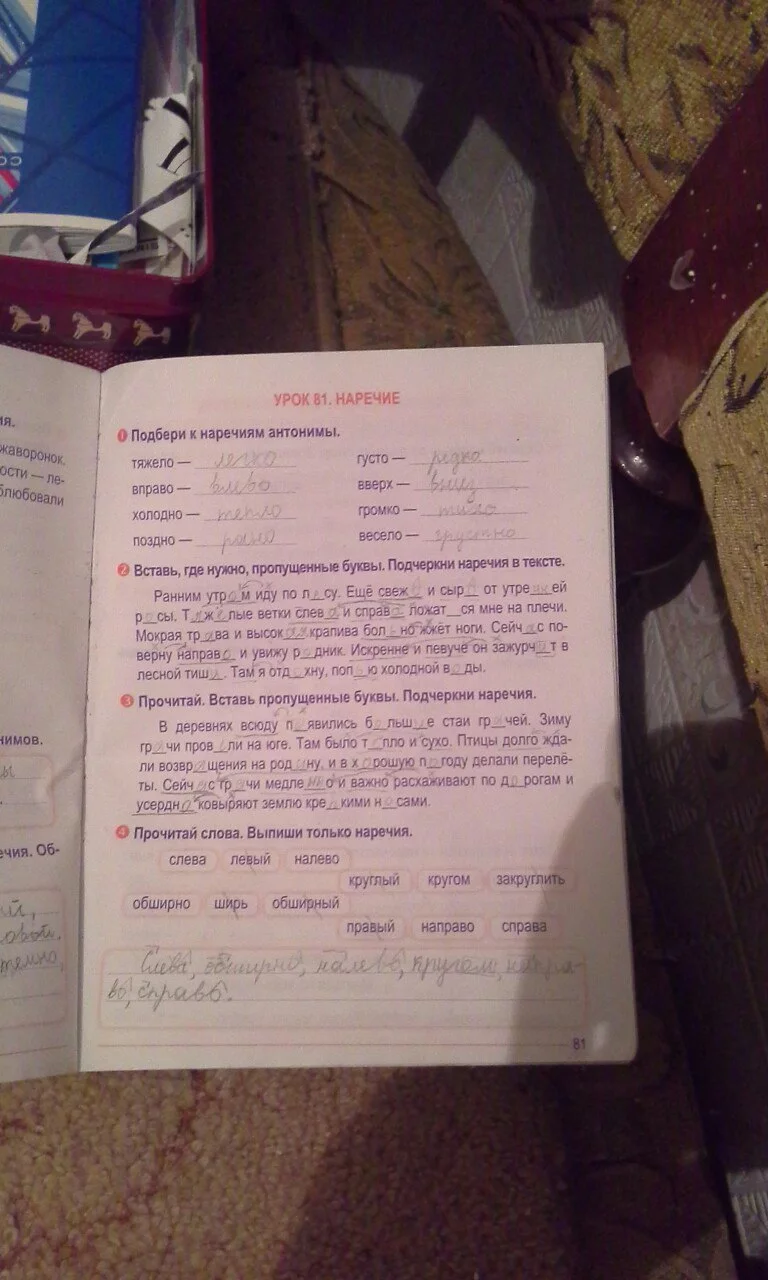 УРОК 81. НАРЕЧИЕ
1 Подбери к наречиям антонимы.
тяжело — легко густо — редко
вправо — влево вверх — вниз
холодно — тепло громко — тихо
поздно — рано весело — грустно
2 Вставь, где нужно, пропущенные буквы. Подчеркни наречия в тексте.
Ранним утром иду по лесу. Ещё свежо и сыро от утренней
росы. Тяжёлые ветки слева и справа ложат_ся мне на плечи.
Мокрая трава и высокая крапива больно жжёт ноги. Сейчас по-
верну направо и увижу родник. Искренне и певуче он зажурчит в
лесной тиши. Там я отдохну, попью холодной воды.
3 Прочитай. Вставь пропущенные буквы. Подчеркни наречия.
В деревнях всюду появились большие стаи грачей. Зиму
грачи провели на юге. Там было тепло и сухо. Птицы долго жда-
ли возвращения на родину, и в хорошую погоду делали перелё-
ты. Сейчас грачи медленно и важно расхаживают по дорогам и
усердно ковыряют землю крепкими носами.
4 Прочитай слова. Выпиши только наречия.
слева левый налево
круглый кругом закруглить
обширно ширь обширный
правый направо справа
Слева, обширно, налево, кругом, напра-
во, справа.
81
ия.
жаворонок.
ости — ле-
блюбовали
нимов.
ы
ечия. Об-
ий,
темно,